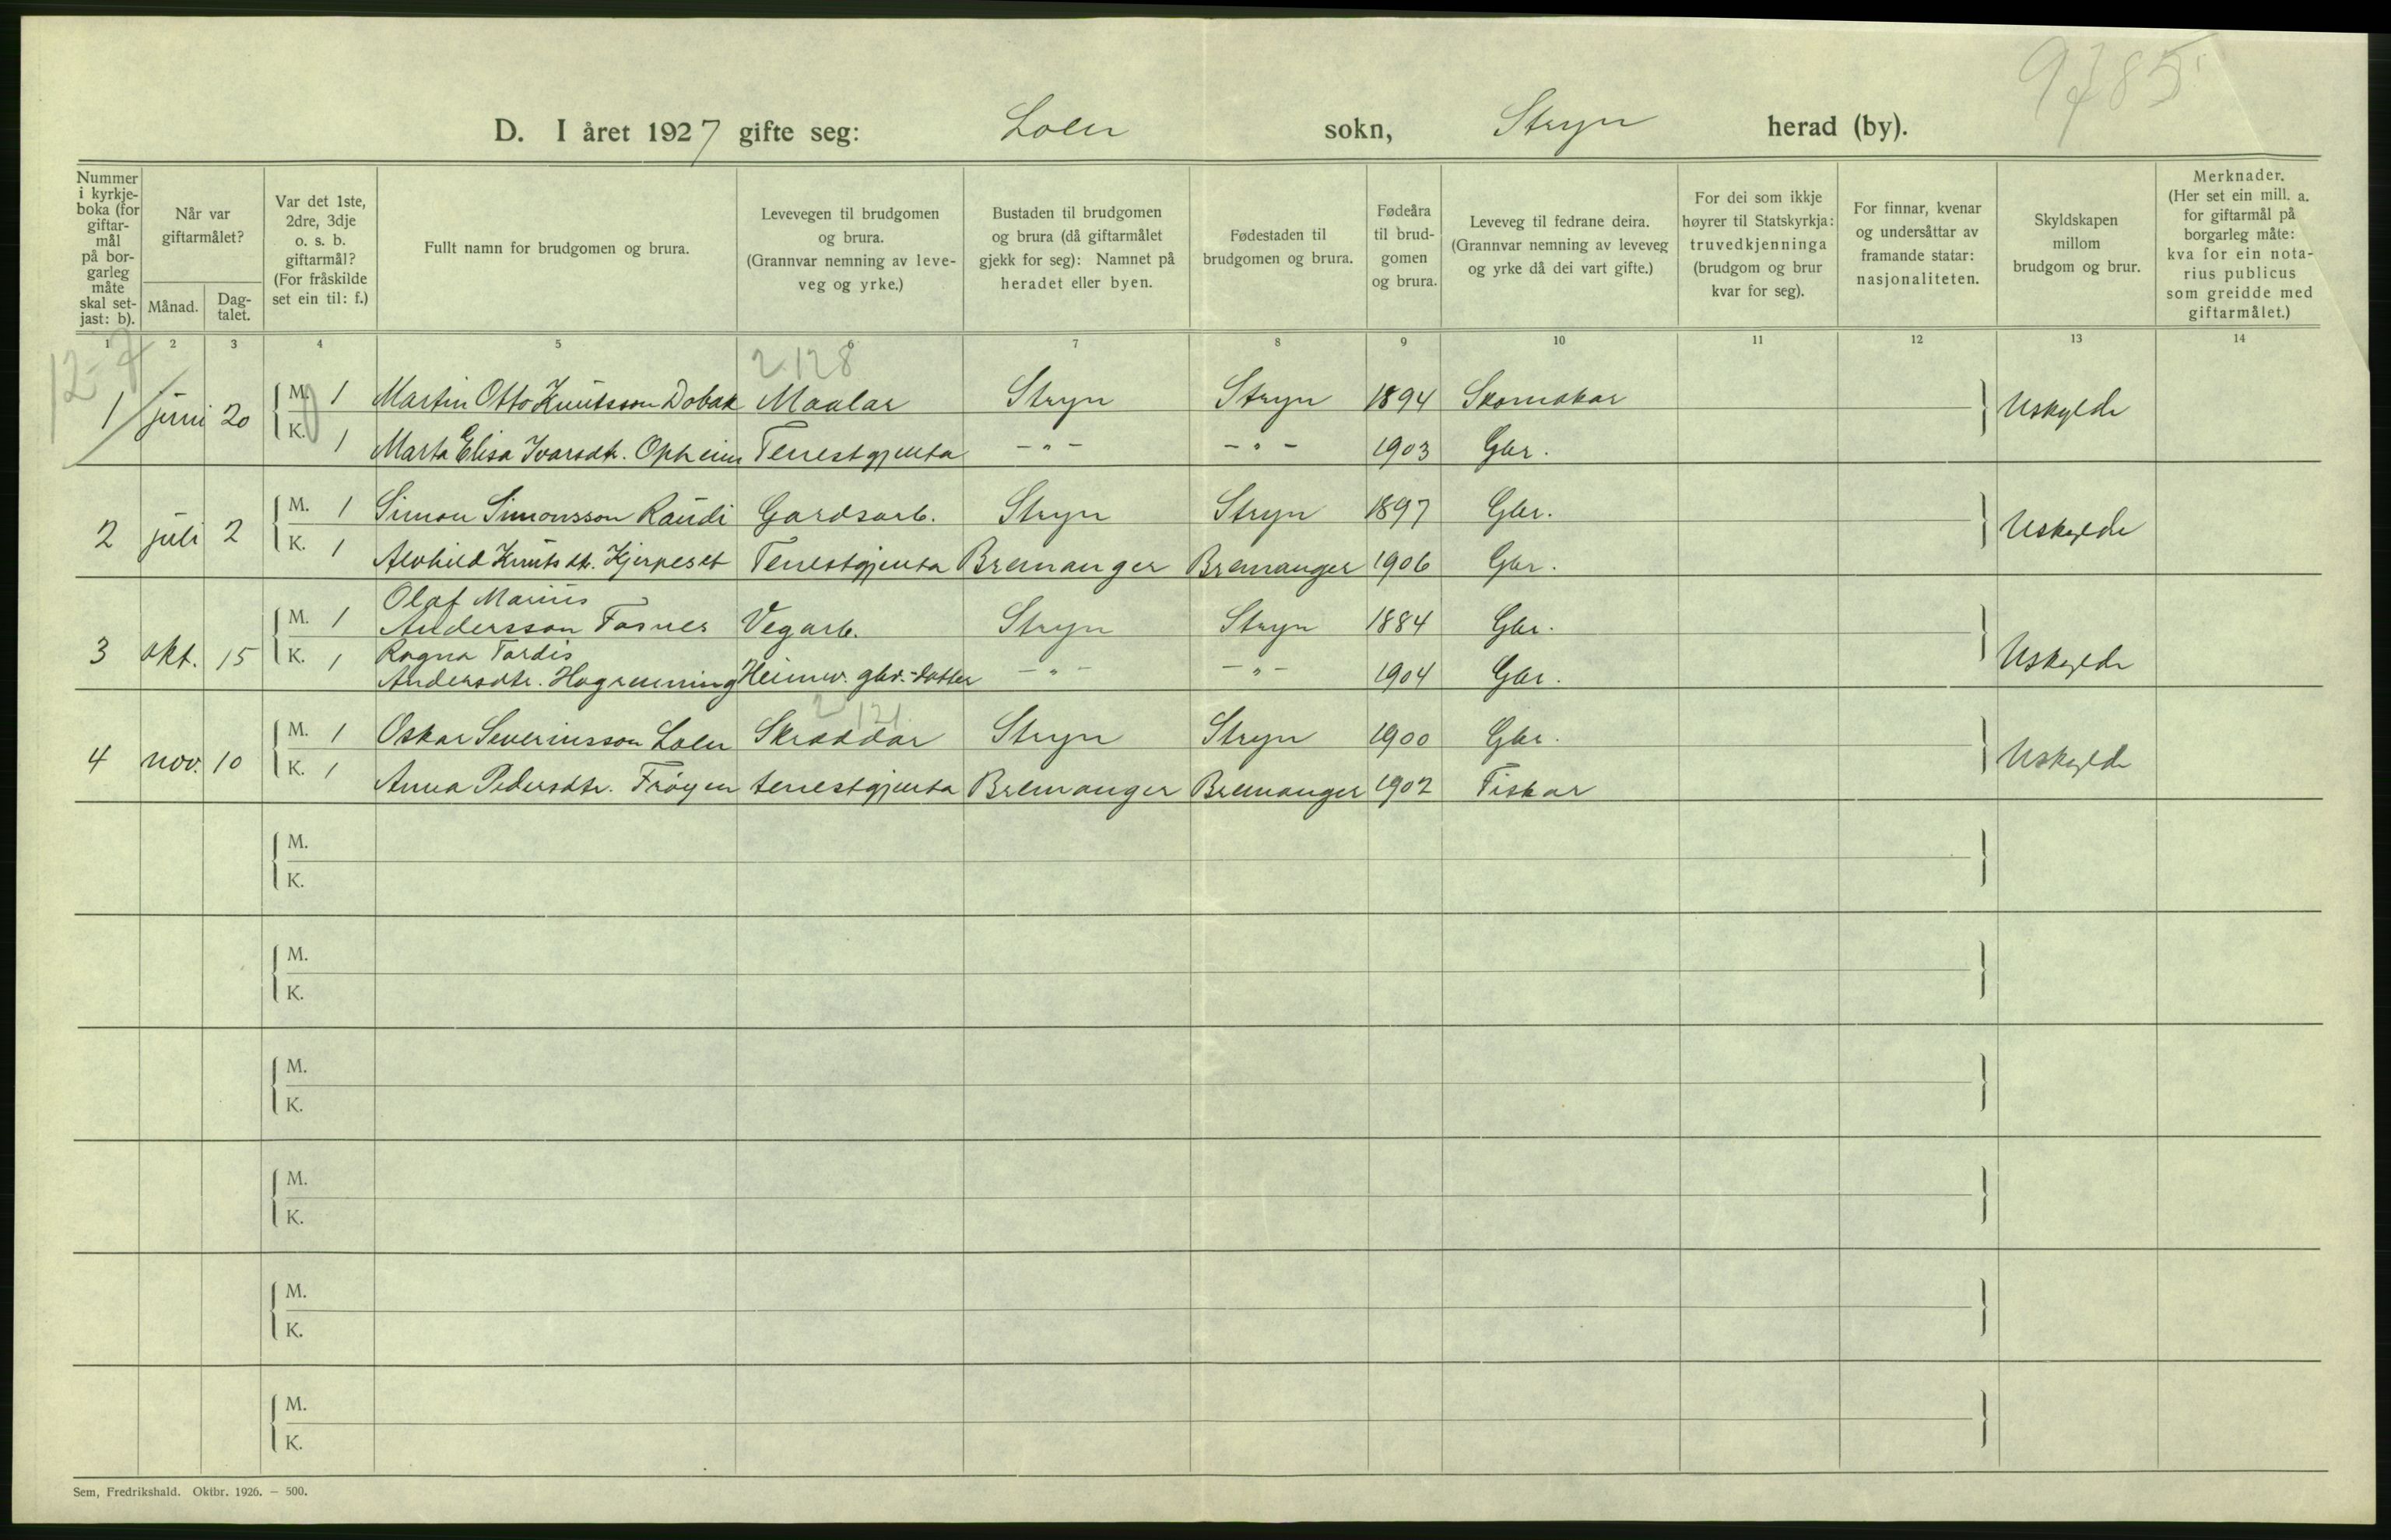 9785
D. I året 1927 gifte seg: Loen sokn, Stryn herad (by).
Nummer i kyrkjeboka (for giftarmål på borgarleg måte skal setjast: b).
Når var giftarmålet?
Månad.
Dagtalet.
Var det 1ste, 2dre, 3dje o. s. b. giftarmål? (For fråskilde set ein til: f.)
Fullt namn for brudgomen og brura.
Levevegen til brudgomen og brura. (Grannvar nemning av leveveg og yrke.)
Bustaden til brudgomen og brura (då giftarmålet gjekk for seg): Namnet på heradet eller byen.
Fødestaden til brudgomen og brura.
Fødeåra til brudgomen og brura.
Leveveg til fedrane deira. (Grannvar nemning av leveveg og yrke då dei vart gifte.)
For dei som ikkje høyrer til Statskyrkja: truvedkjenninga (brudgom og brur kvar for seg).
For finnar, kvenar og undersåttar av framande statar: nasjonaliteten.
Skyldskapen millom brudgom og brur.
Merknader. (Her set ein mill. a. for giftarmål på borgarleg måte: kva for ein notarius publicus som greidde med giftarmålet.)
1 2 3 4 5 6 7 8 9 10 11 12 13 14
12-7 2128
1 juni 20 M. 1 Martin Otto Knutsson Dobak Maalar Stryn Stryn 1894 Skomakar Uskylde
K. 1 Marta Elisa Ivarsdtr. Opheim Tenestgjenta -"- -"- 1903 Gbr.
2 juli 2 M. 1 Simon Simonsson Raudi Gardsarb. Stryn Stryn 1897 Gbr. Uskylde
K. 1 Alvhild Knutsdtr. Kjerpeset Tenestgjenta Bremanger Bremanger 1906 Gbr.
3 okt. 15 M. 1 Olaf Marius
Andersson Fosnes Vegarb. Stryn Stryn 1884 Gbr. Uskylde
K. 1 Ragna Tordis
Andersdtr. Hogrenning Heimev. gbr.-dotter -"- -"- 1904 Gbr.
2 121
4 nov. 10 M. 1 Oskar Severinsson Loen Skræddar Stryn Stryn 1900 Gbr. Uskylde
K. 1 Anna Pedersdtr. Frøyen tenestgjenta Bremanger Bremanger 1902 Fiskar
M.
K.
M.
K.
M.
K.
M.
K.
M.
K.
M.
K.
Sem, Fredrikshald. Oktbr. 1926. — 500.